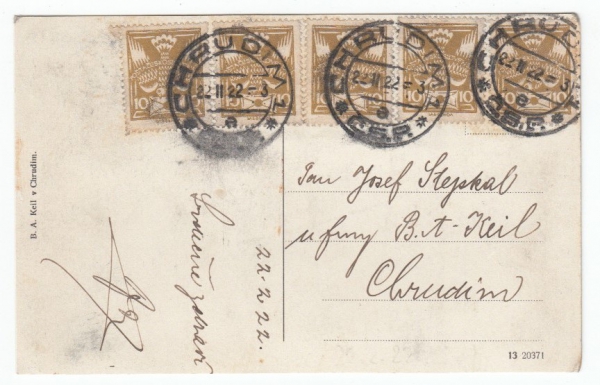 CHRUDIM 1
22.II.22-3
e
* Č.S.P. *
CHRUDIM 1
22.II.22-3
e
* Č.S.P. *
CHRUDIM 1
22.II.22-3
e
* Č.S.P. *
10
15
10
10
10
B. A. Keil v Chrudim.
22.2.22.
Pan Josef Stejskal
u firmy B.A-Keil
Chrudim
13 20371